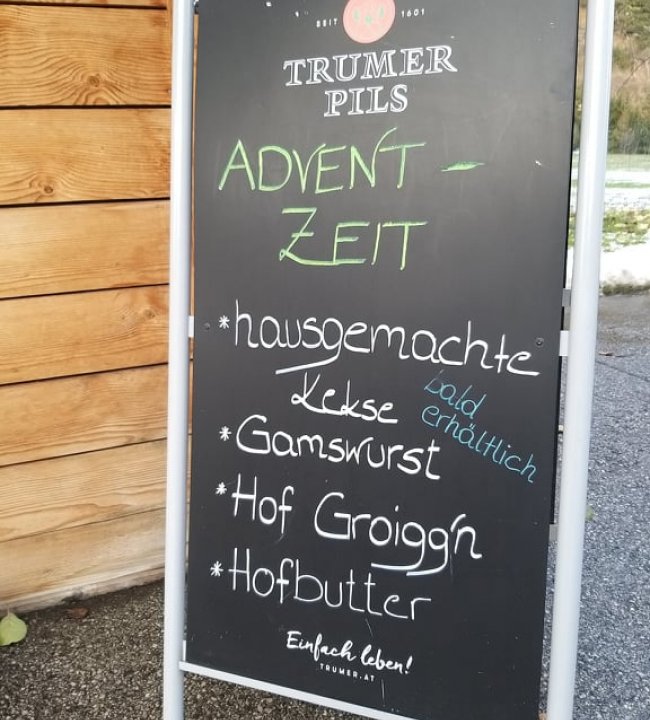 SEIT 1601
TRUMER
PILS
ADVENT -
ZEIT
*hausgemachte
Kekse
bald
erhältlich
*Gamswurst
*Hof Groigg'n
*Hofbutter
Einfach leben!
TRUMER.AT